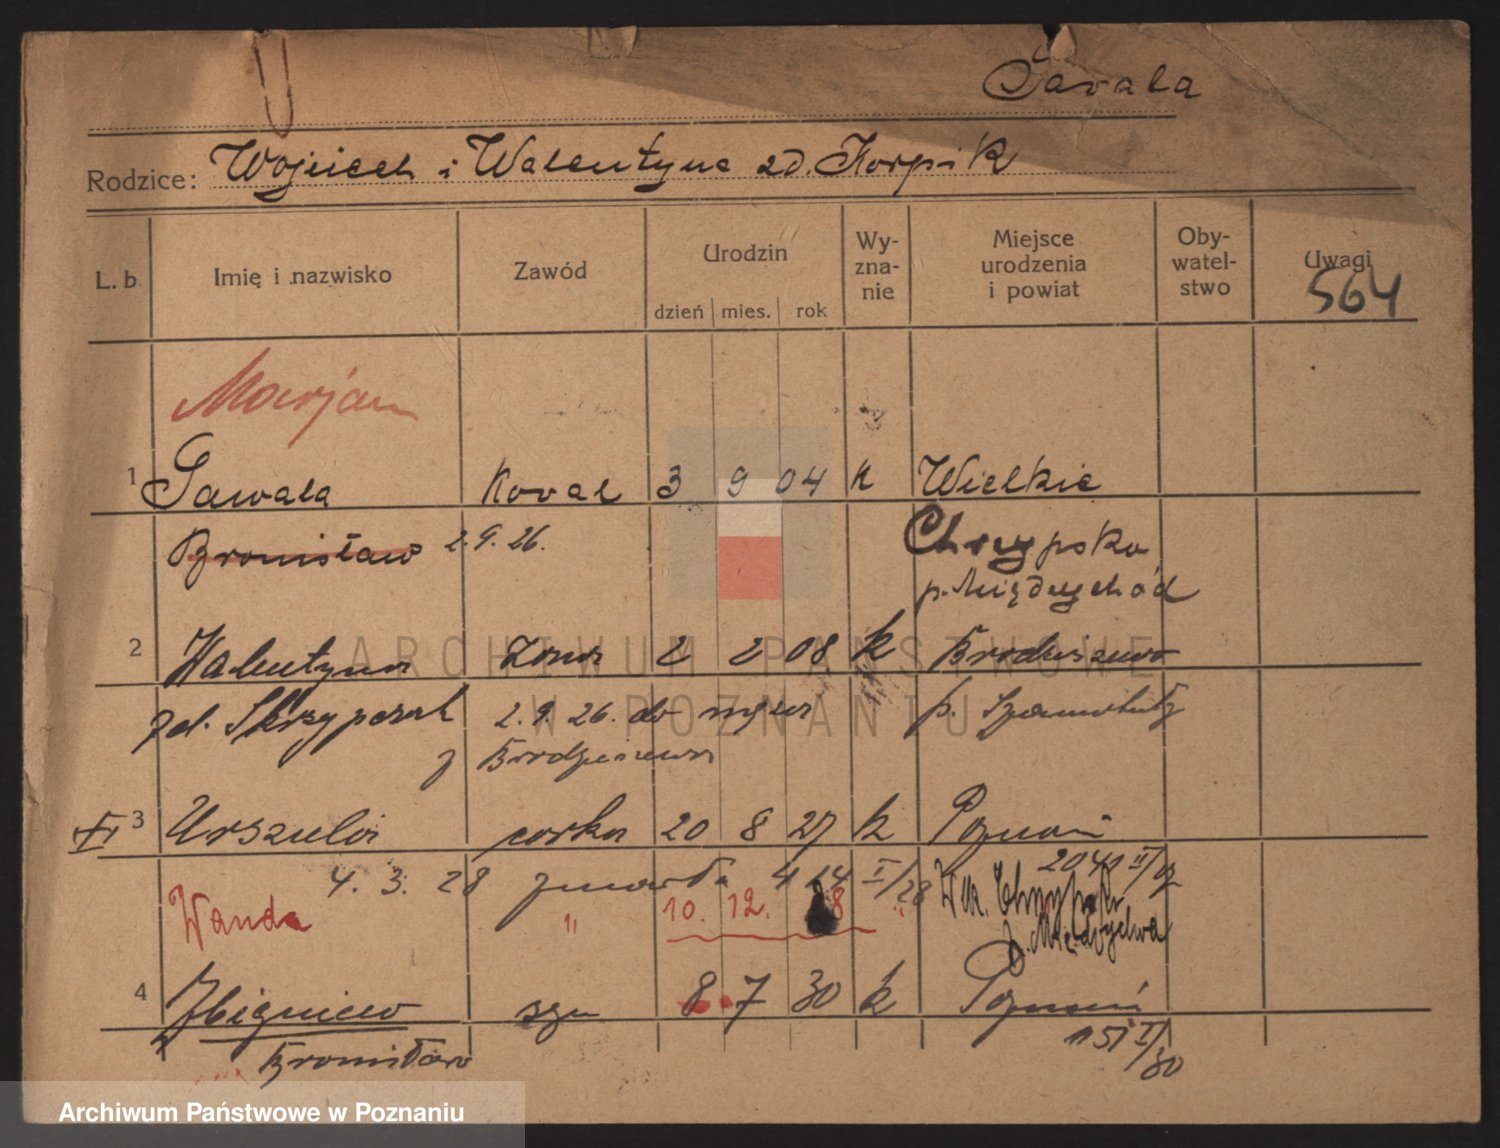 Gawala
Rodzice: Wojciech i Walentyna zd. Korpik
L. b. Imię i nazwisko Zawód Urodzin dzień mies. rok Wy-zna-nie Miejsce urodzenia i powiat Oby-watel-stwo Uwagi
564
Marjan
1 Gawala Kowal 3 9 04 k Wielkie
Bronisław 2.9.26. Chrzypsko
p. Międzychód
2 Walentyna żona 2 2 08 k Brodziszewo
zd. Skrzypczak 2.9.26. do męża p. Szamotuły
z Brodziszewa
3 Urszula córka 20 8 27 k Poznań
4. 3. 28 zmarła 414 I/28 2041 II/27
Wanda " 10. 12. 8 " Wlk. Chrzypsko
p. Międzychód
4 Zbigniew syn 8 7 30 k Poznań
Bronisław 1151 I/30
ARCHIWUM PAŃSTWOWE
W POZNANIU
Archiwum Państwowe w Poznaniu